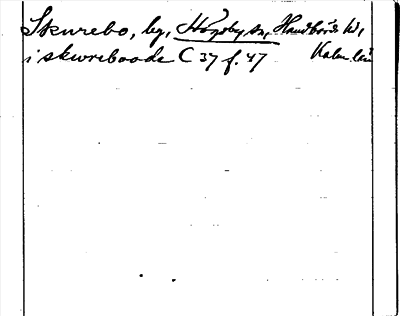 Skurebo, by, Högsby sn, Handbörds hd,
i skwreboode C 37 f. 47 Kalm. län